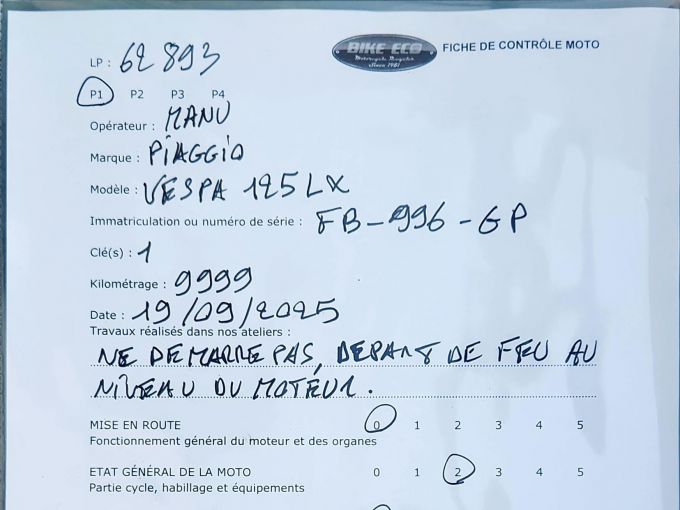 BIKE ECO
Motorcycle Recycler
Since 1981
FICHE DE CONTRÔLE MOTO
LP : 62893
P1 P2 P3 P4
Opérateur : MANU
Marque : PIAGGIO
Modèle : VESPA 125 LX
Immatriculation ou numéro de série : FB-996-GP
Clé(s) : 1
Kilométrage : 9999
Date : 19/09/2025
Travaux réalisés dans nos ateliers :
NE DEMARRE PAS, DEPART DE FEU AU
NIVEAU DU MOTEUR.
MISE EN ROUTE 0 1 2 3 4 5
Fonctionnement général du moteur et des organes
ETAT GÉNÉRAL DE LA MOTO 0 1 2 3 4 5
Partie cycle, habillage et équipements